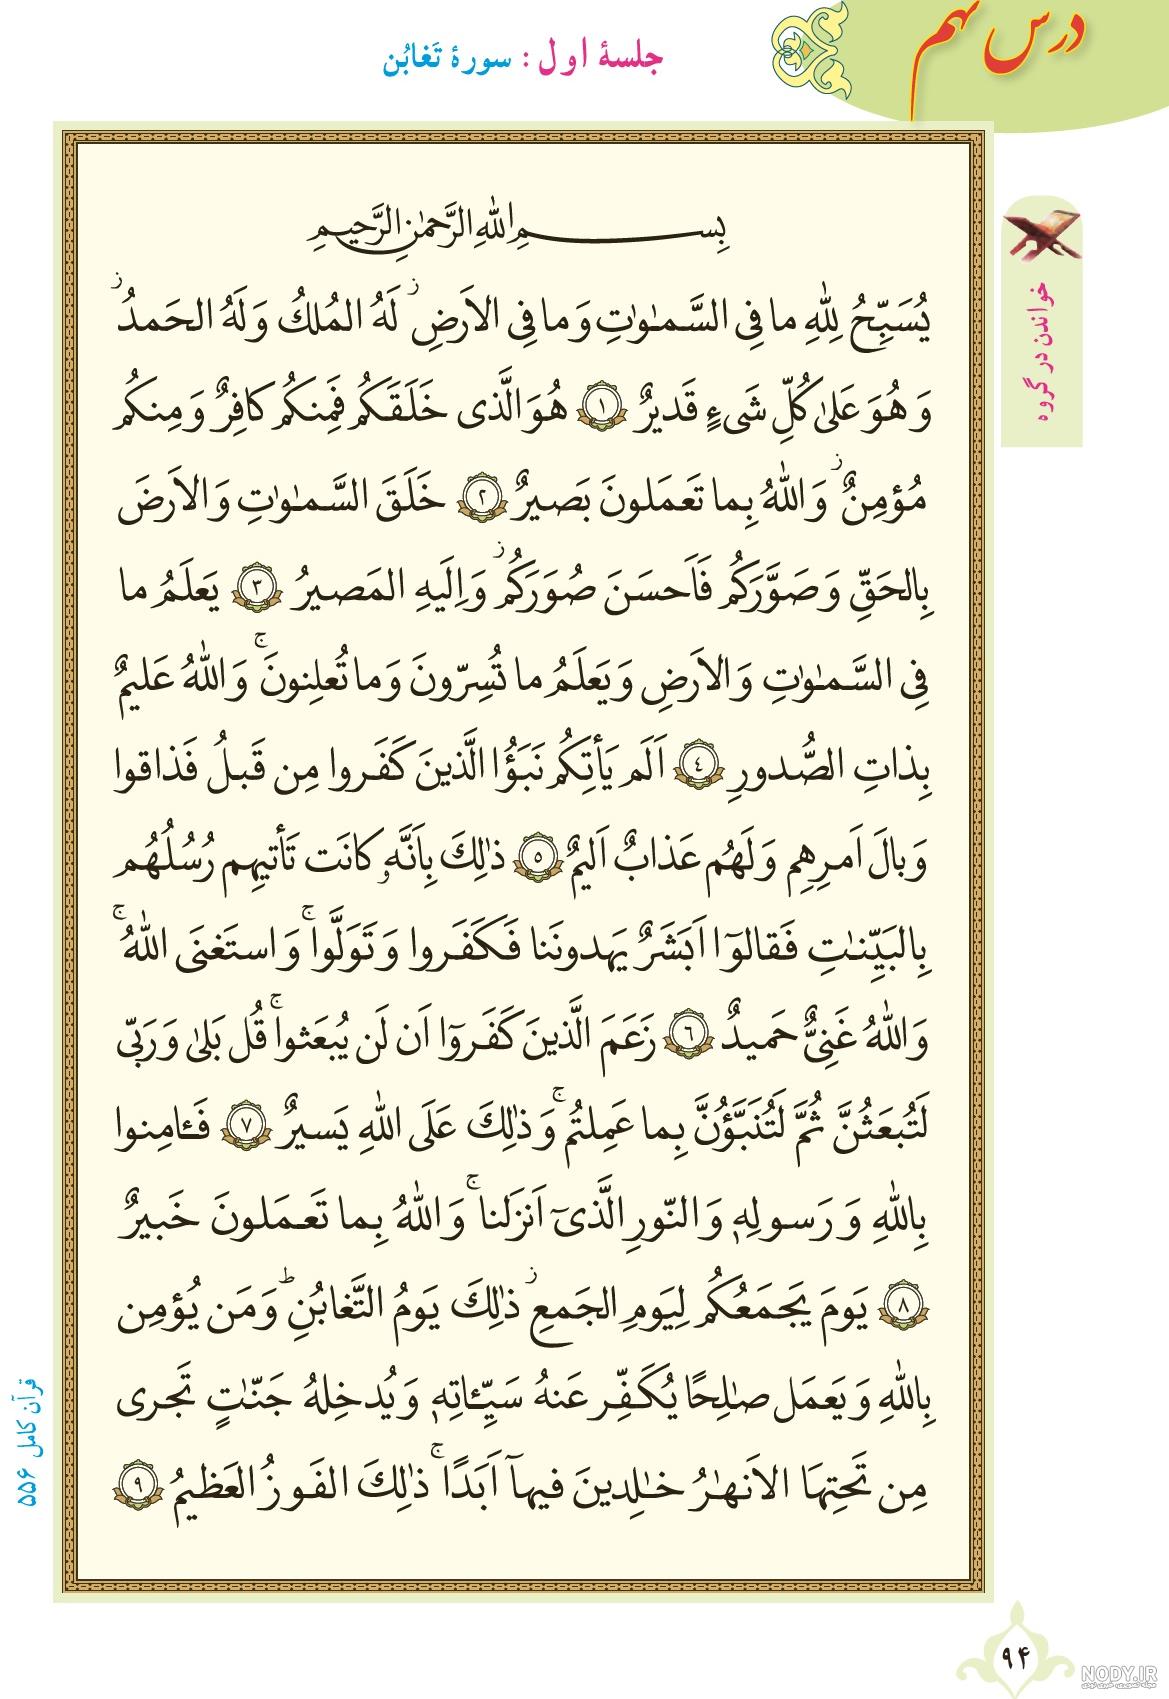 درس نهم
جلسهٔ اول : سورهٔ تَغابُن
خواندن در گروه
بِسمِ اللّٰهِ الرَّحمٰنِ الرَّحیمِ
یُسَبِّحُ لِلّٰهِ ما فِی السَّمٰوٰتِ وَ ما فِی الاَرضِ ز لَهُ المُلکُ وَ لَهُ الحَمدُ ز
وَ هُوَ عَلیٰ کُلِّ شَیءٍ قَدیرٌ ﴿١﴾ هُوَ الَّذی خَلَقَکُم فَمِنکُم کافِرٌ وَ مِنکُم
مُؤمِنٌ ز وَ اللّٰهُ بِما تَعمَلونَ بَصیرٌ ﴿٢﴾ خَلَقَ السَّمٰوٰتِ وَ الاَرضَ
بِالحَقِّ وَ صَوَّرَکُم فَاَحسَنَ صُوَرَکُم ز وَ اِلَیهِ المَصیرُ ﴿٣﴾ یَعلَمُ ما
فِی السَّمٰوٰتِ وَ الاَرضِ وَ یَعلَمُ ما تُسِرّونَ وَ ما تُعلِنونَ ج وَ اللّٰهُ عَلیمٌ
بِذاتِ الصُّدورِ ﴿٤﴾ اَلَم یَأتِکُم نَبَؤُا الَّذینَ کَفَروا مِن قَبلُ فَذاقوا
وَبالَ اَمرِهِم وَ لَهُم عَذابٌ اَلیمٌ ﴿٥﴾ ذٰلِکَ بِاَنَّهو کانَت تَأتیهِم رُسُلُهُم
بِالبَیِّنٰتِ فَقالوٓا اَبَشَرٌ یَهدونَنا فَکَفَروا وَ تَوَلَّوا ج وَ استَغنَی اللّٰهُ ج
وَ اللّٰهُ غَنِیٌّ حَمیدٌ ﴿٦﴾ زَعَمَ الَّذینَ کَفَروٓا اَن لَن یُبعَثوا ج قُل بَلیٰ وَ رَبّی
لَتُبعَثُنَّ ثُمَّ لَتُنَبَّؤُنَّ بِما عَمِلتُم ج وَ ذٰلِکَ عَلَی اللّٰهِ یَسیرٌ ﴿٧﴾ فَـٔامِنوا
بِاللّٰهِ وَ رَسولِهٖ وَ النّورِ الَّذیٓ اَنزَلنا ج وَ اللّٰهُ بِما تَعمَلونَ خَبیرٌ
﴿٨﴾ یَومَ یَجمَعُکُم لِیَومِ الجَمعِ ز ذٰلِکَ یَومُ التَّغابُنِ ط وَ مَن یُؤمِن
بِاللّٰهِ وَ یَعمَل صٰلِحًا یُکَفِّر عَنهُ سَیِّـٔاتِهٖ وَ یُدخِلهُ جَنّٰتٍ تَجری
مِن تَحتِهَا الاَنهٰرُ خٰلِدینَ فیهآ اَبَدًا ج ذٰلِکَ الفَوزُ العَظیمُ ﴿٩﴾
قرآن کامل ۵۵۶
۹۴
NODY.IR